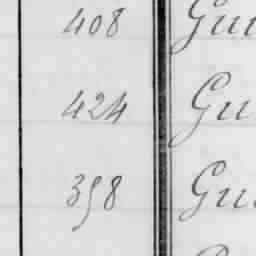 408 Gu
424 Gu
398 Gu